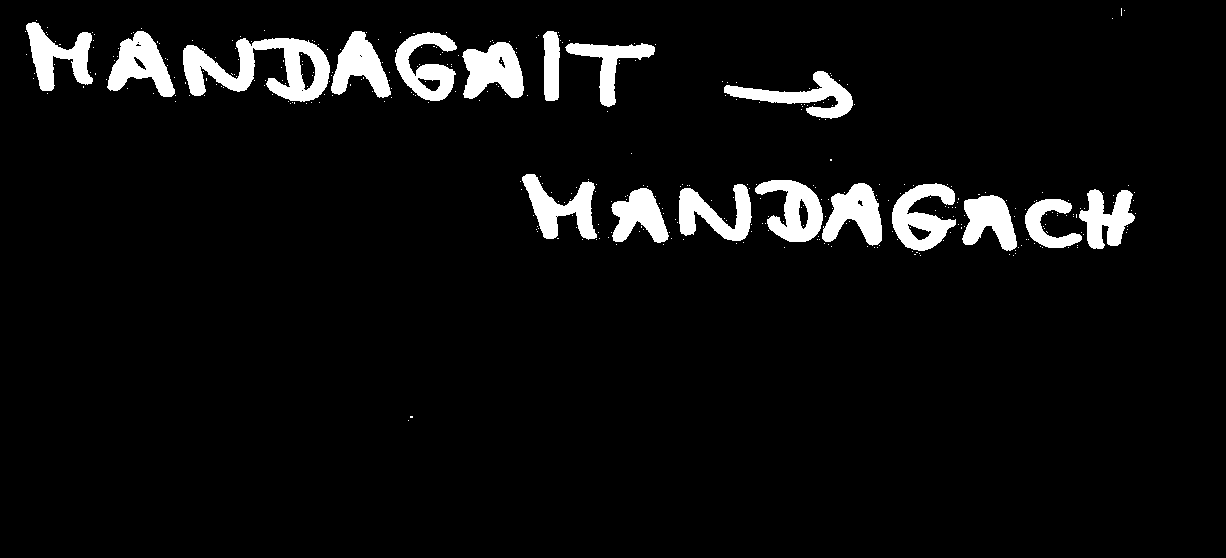 MANDAGAIT →
MANDAGACH